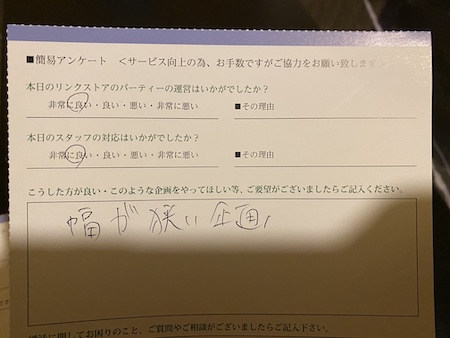 ■簡易アンケート <サービス向上の為、お手数ですがご協力をお願い致します
本日のリンクストアのパーティーの運営はいかがでしたか？
非常に良い・良い・悪い・非常に悪い ■その理由
本日のスタッフの対応はいかがでしたか？
非常に良い・良い・悪い・非常に悪い ■その理由
こうした方が良い・このような企画をやってほしい等、ご要望がございましたらご記入ください。
幅が狭い企画
に関してお困りのこと、ご質問やご相談がございましたらご記入下さい。